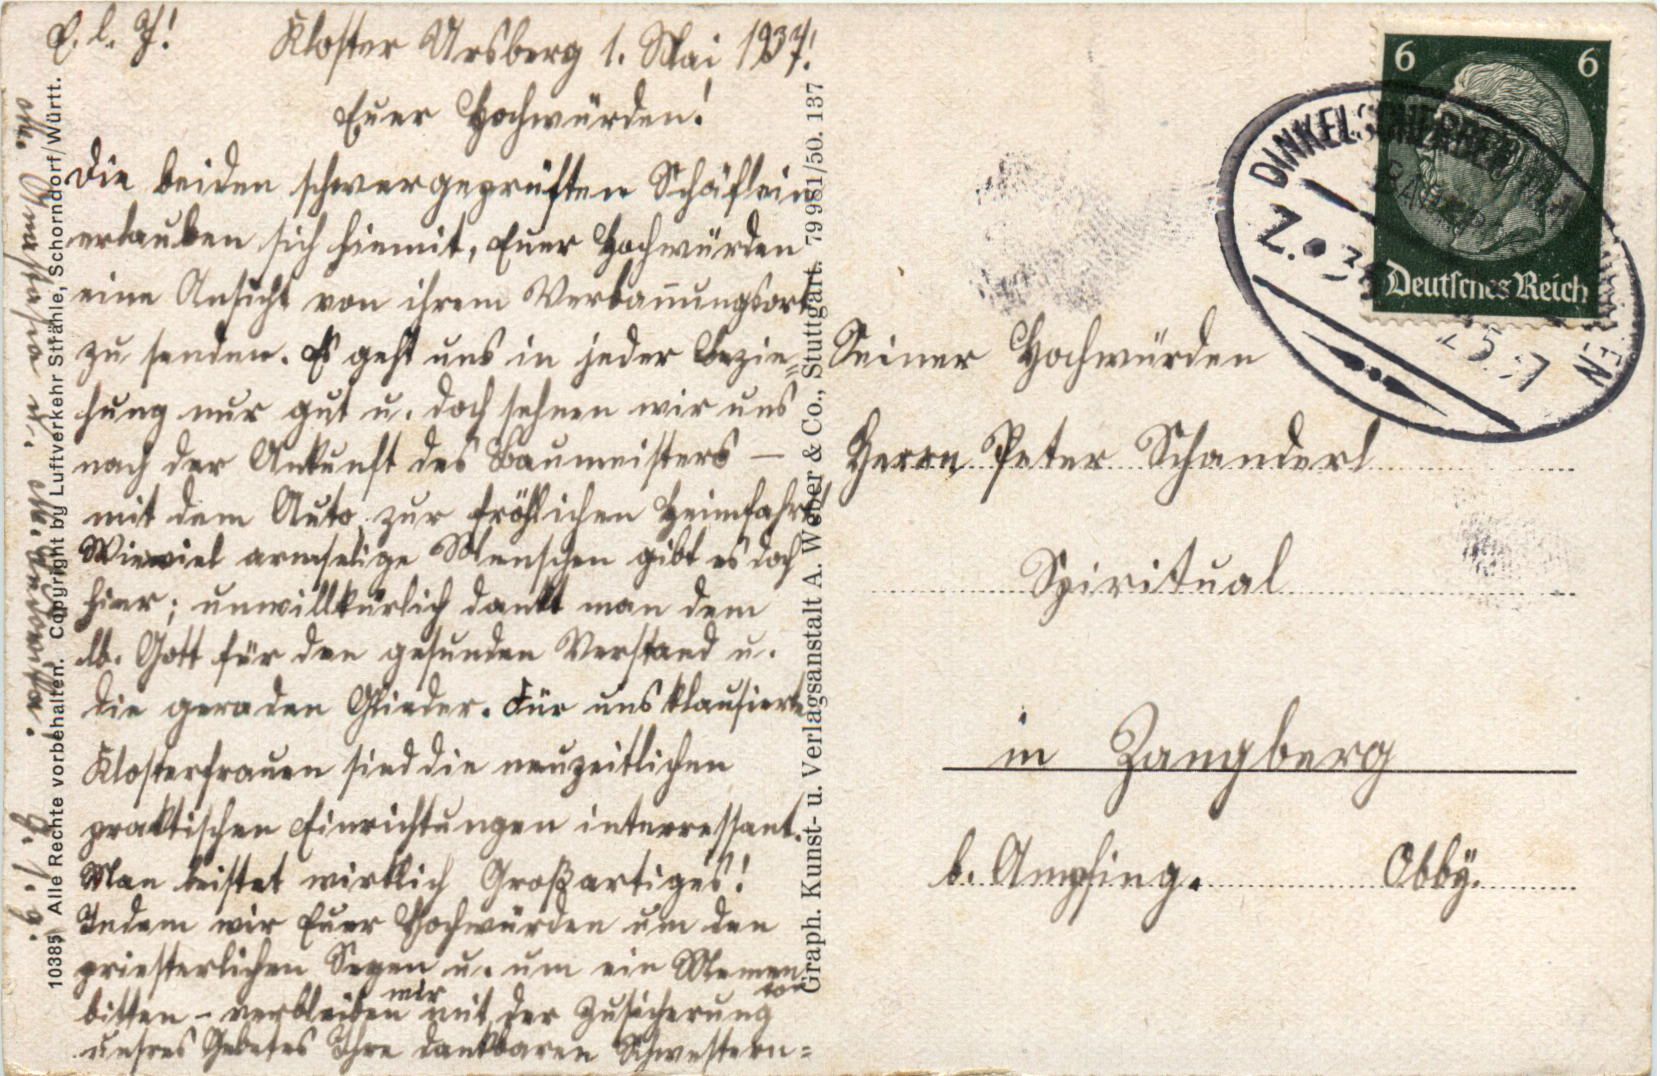 G. l. J!
Kloster Ursberg 1. Mai 1937!
Euer Hochwürden!
Die beiden schwergeprüften Schäflein
erlauben sich hiemit, Euer Hochwürden
eine Ansicht von ihrem Verbannungsort
zu senden. Es geht uns in jeder Bezie=
hung nur gut u. doch sehnen wir uns
nach der Ankunft des Baumeisters —
mit dem Auto zur fröhlichen Heimfahrt.
Wieviel armselige Menschen gibt es doch
hier; unwillkürlich dankt man dem
lb. Gott für den gesunden Verstand u.
die geraden Glieder. Für uns klausierte
Klosterfrauen sind die neuzeitlichen
praktischen Einrichtungen interressant.
Man leistet wirklich Großartiges!
Indem wir Euer Hochwürden um den
priesterlichen Segen u. um ein Memen
to
bitten – verbleiben wir mit der Zusicherung
unsres Gebetes Ihre dankbaren Schwestern=
M. Anastasia u. M.
10385 Alle Rechte vorbehalten. Copyright by Luftverkehr Strähle, Schorndorf/Württ.
Graph. Kunst- u. Verlagsanstalt A. Weber & Co., Stuttgart. 79981/50. 137
6 6
Deutsches Reich
DINKELSCHERBEN
BAHNPOST
Z.
Seiner Hochwürden
Herrn Peter Schanderl
Spiritual
in Zangberg
b. Ampfing. Obby.